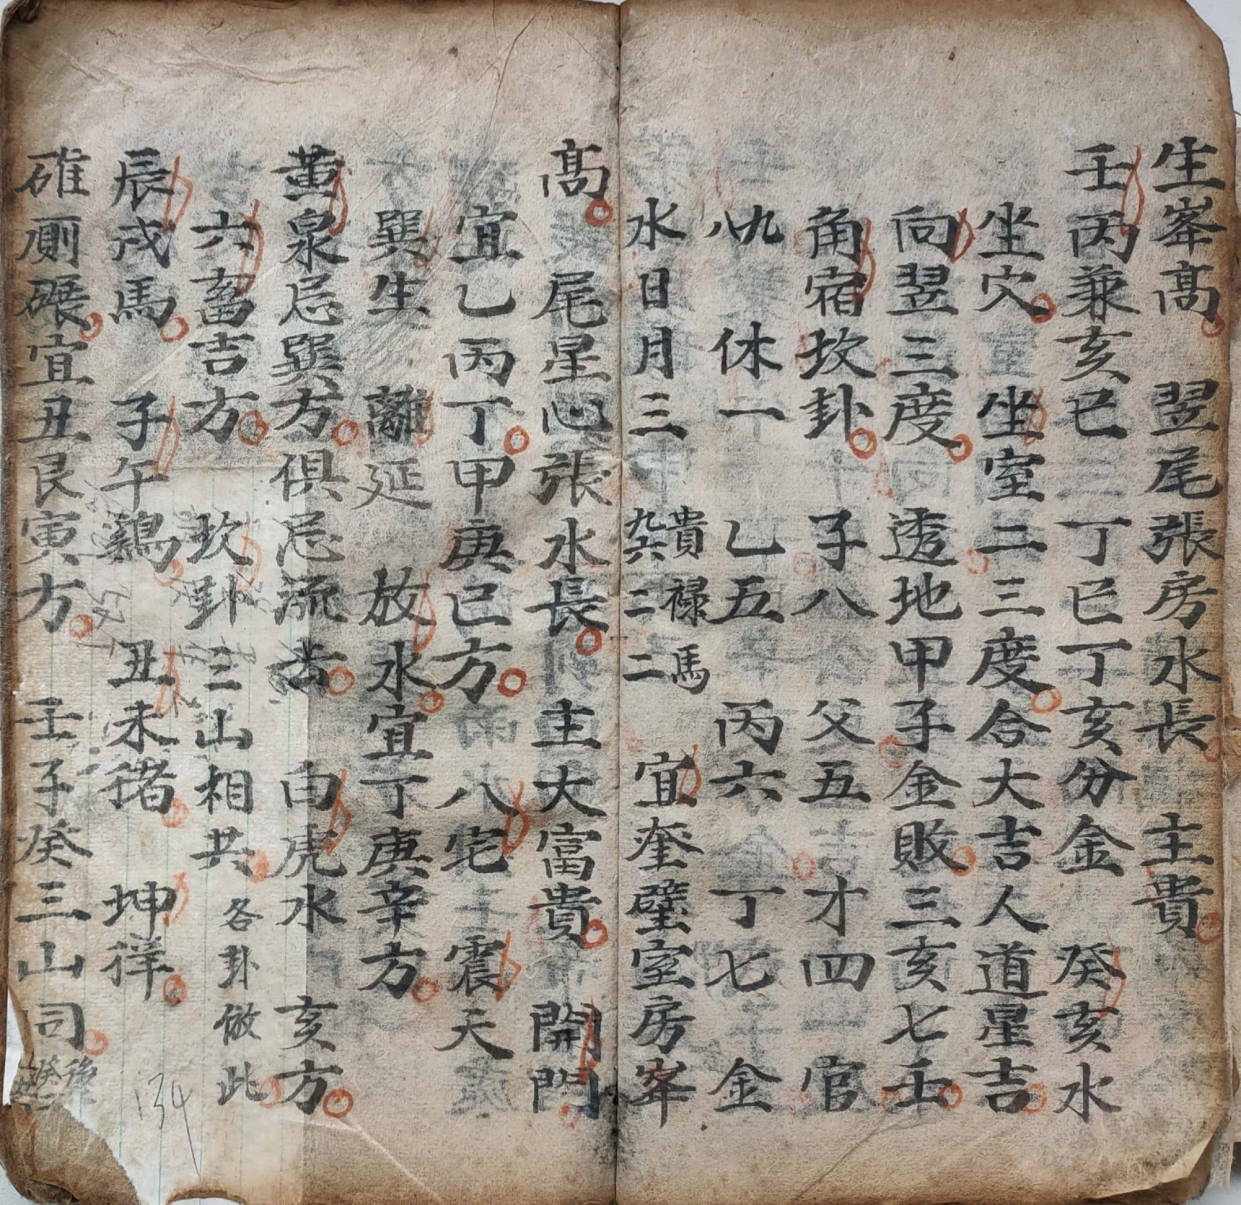 生峯高 翌尾張房水長 主貴
壬丙兼亥巳 丁巳丁亥分金 癸亥水
坐穴 坐室二三度合大吉人道星吉
向翌三度 透地甲子金敗三亥七壬
角宿坎卦 子八 父五 才四 官
八九 休一 乙五 丙六 丁七 金
水日月三 貴祿馬 宜奎壁室房峯
高 尾星心張水長 主大富貴 開門
宜乙丙丁甲庚巳方 八宅 震天
巽生 離延 放水宜丁庚辛方
黄泉忌巽方俱忌流去 白虎水 亥方
六畜吉方 坎卦三山相共 各卦倣此
辰戌馬 子午鷄 丑未猪 坤徉
碓厠碾宜丑艮寅方 壬子癸三山同
134